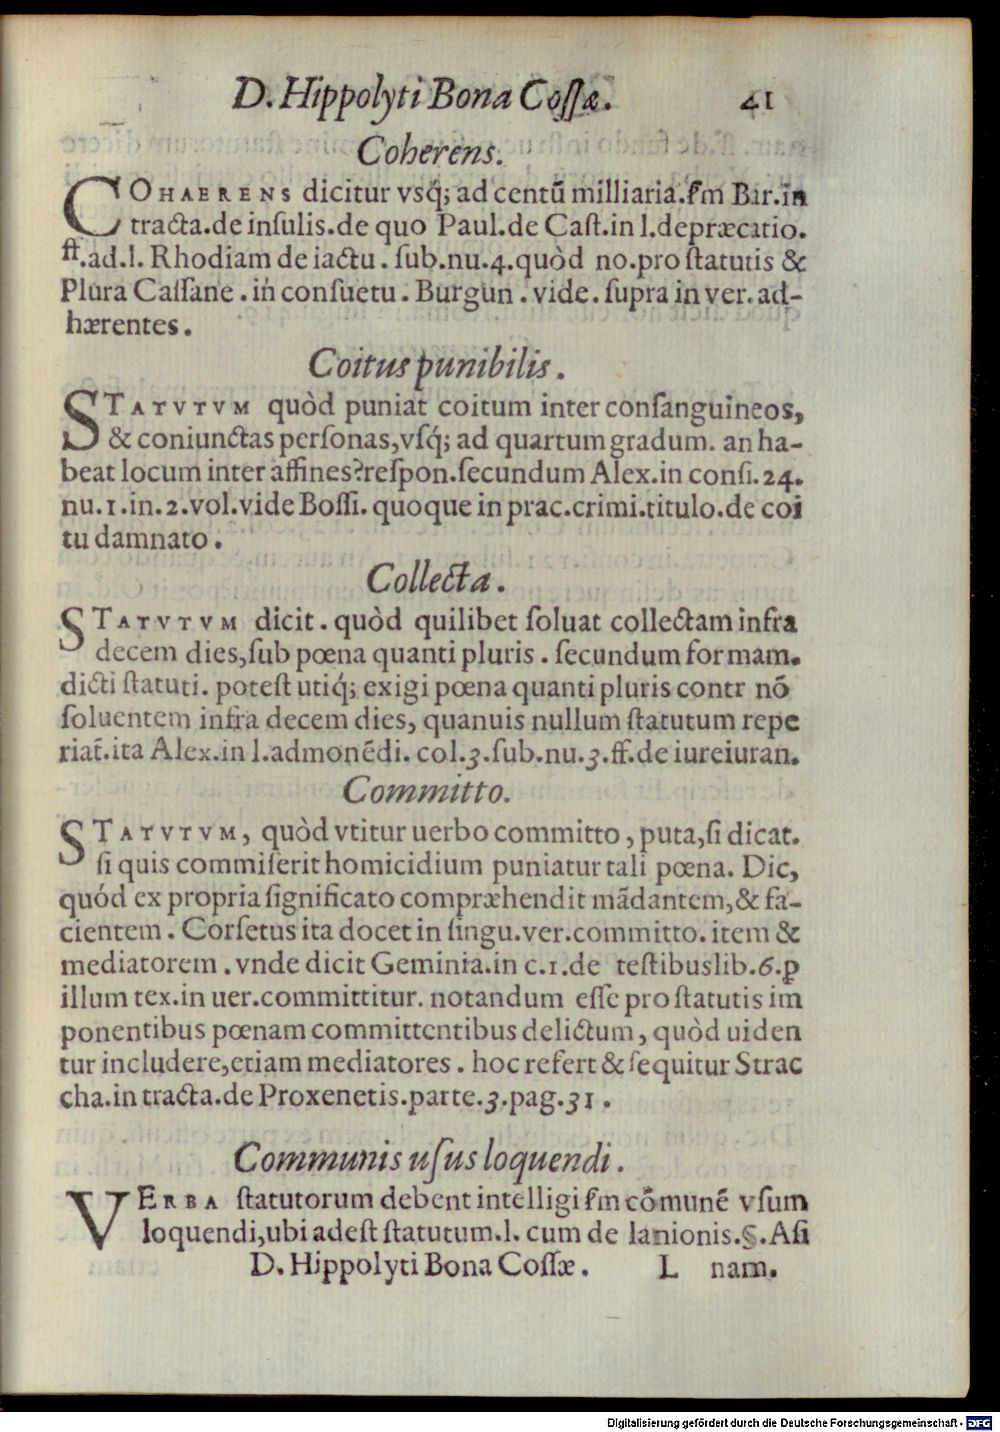 D. Hippolyti Bona Coſſæ. 41
Coherens.
COHAERENS dicitur vsq́; ad centũ milliaria. ſ̃m Bar. in
tracta. de inſulis. de quo Paul. de Caſt. in l. depræcatio.
ff. ad. l. Rhodiam de iactu. ſub. nu. 4. quòd no. pro ſtatutis &
Plura Caſſane. in conſuetu. Burgun. vide. ſupra in ver. ad-
hærentes.
Coitus punibilis.
STATVTVM quòd puniat coitum inter conſanguineos,
& coniunctas perſonas, vſq́; ad quartum gradum. an ha-
beat locum inter affines? reſpon. ſecundum Alex. in conſi. 24.
nu. 1. in. 2. vol. vide Boſſi. quoque in prac. crimi. titulo. de coi
tu damnato.
Collecta.
STATVTVM dicit. quòd quilibet ſoluat collectam infra
decem dies, ſub pœna quanti pluris. ſecundum formam.
dicti ſtatuti. poteſt utiq́; exigi pœna quanti pluris contr nõ
ſoluentem infra decem dies, quanuis nullum ſtatutum repe
riat̃. ita Alex. in l. admonẽdi. col. 3. ſub. nu. 3. ff. de iureiuran.
Committo.
STATVTVM, quòd vtitur uerbo committo, puta, ſi dicat.
ſi quis commiſerit homicidium puniatur tali pœna. Dic,
quód ex propria ſignificato compræhendit mãdantem, & fa-
cientem. Corſetus ita docet in ſingu. ver. committo. item &
mediatorem. vnde dicit Geminia. in c. 1. de teſtibus lib. 6. ꝑ
illum tex. in uer. committitur. notandum eſſe pro ſtatutis im
ponentibus pœnam committentibus delictum, quòd uiden
tur includere, etiam mediatores. hoc refert & ſequitur Strac
cha. in tracta. de Proxenetis. parte. 3. pag. 31.
Communis uſus loquendi.
VERBA ſtatutorum debent intelligi ſ̃m cõmunẽ vſum
loquendi, ubi adeſt ſtatutum. l. cum de lanionis. §. Aſi
D. Hippolyti Bona Coſſæ. L nam.
Digitalisierung gefördert durch die Deutsche Forschungsgemeinschaft - DFG